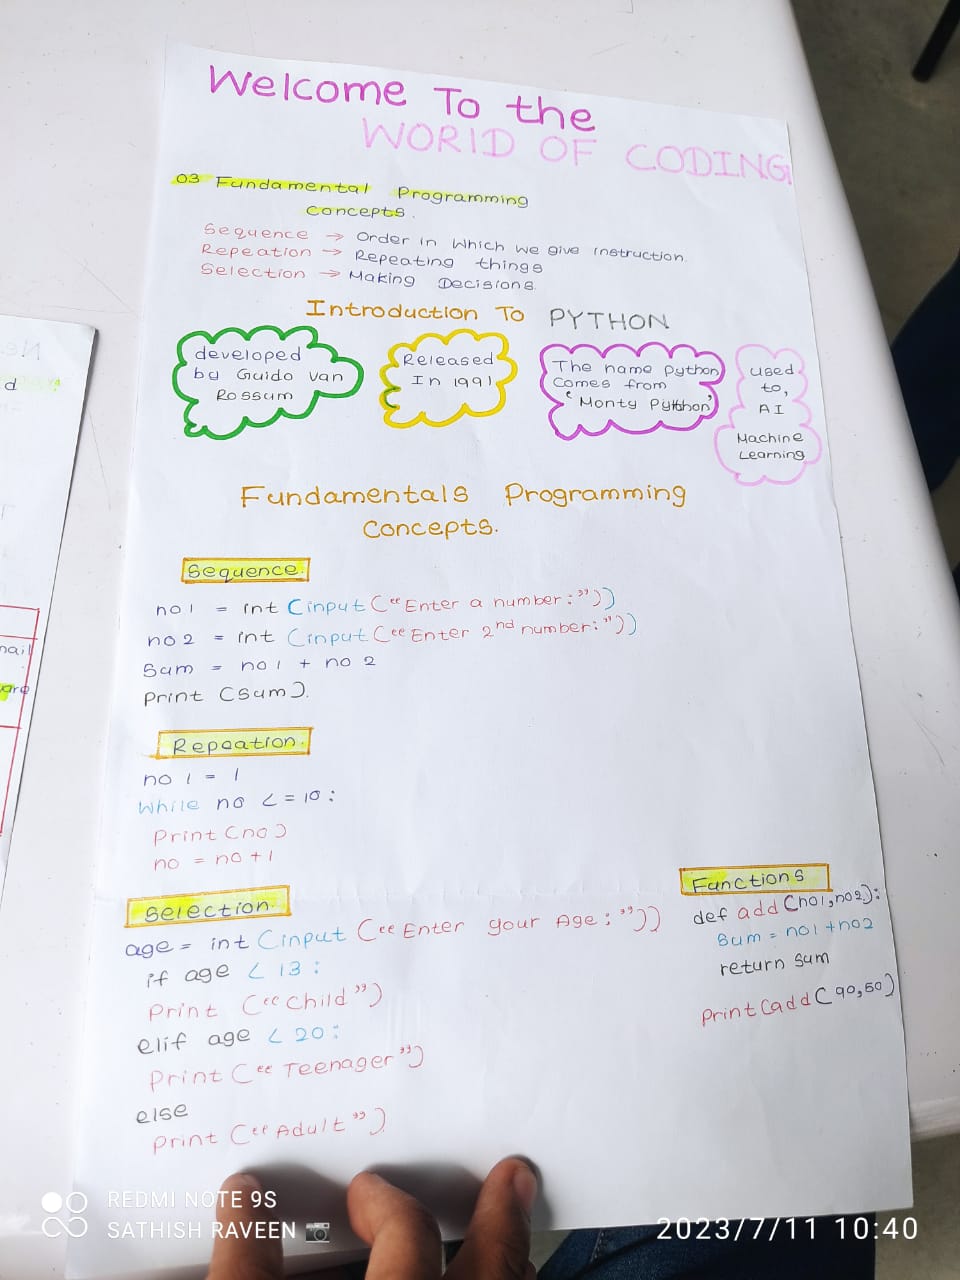 Welcome To the
WORLD OF CODING
03 Fundamental Programming
Concepts.
Sequence → Order in Which we give instruction.
Repeation → Repeating things
Selection → Making Decisions.
Introduction To PYTHON
developed
by Guido van
Rossum
Released
In 1991
The name python
comes from
‘Monty Python’
used
to,
AI
Machine
Learning
Fundamentals Programming
Concepts.
Sequence.
no1 = int (input (“Enter a number:”))
no2 = int (input (“Enter 2nd number:”))
Sum = no1 + no2
Print (sum).
Repeation.
no1 = 1
While no <= 10:
Print (no)
no = no+1
Selection.
age = int (input (“Enter your Age:”))
if age < 13:
Print (“Child”)
elif age < 20:
Print (“Teenager”)
else
Print (“Adult”)
Functions
def add (no1,no2):
Sum = no1+no2
return sum
Print (add (90,50)
nail
REDMI NOTE 9S
SATHISH RAVEEN
2023/7/11 10:40